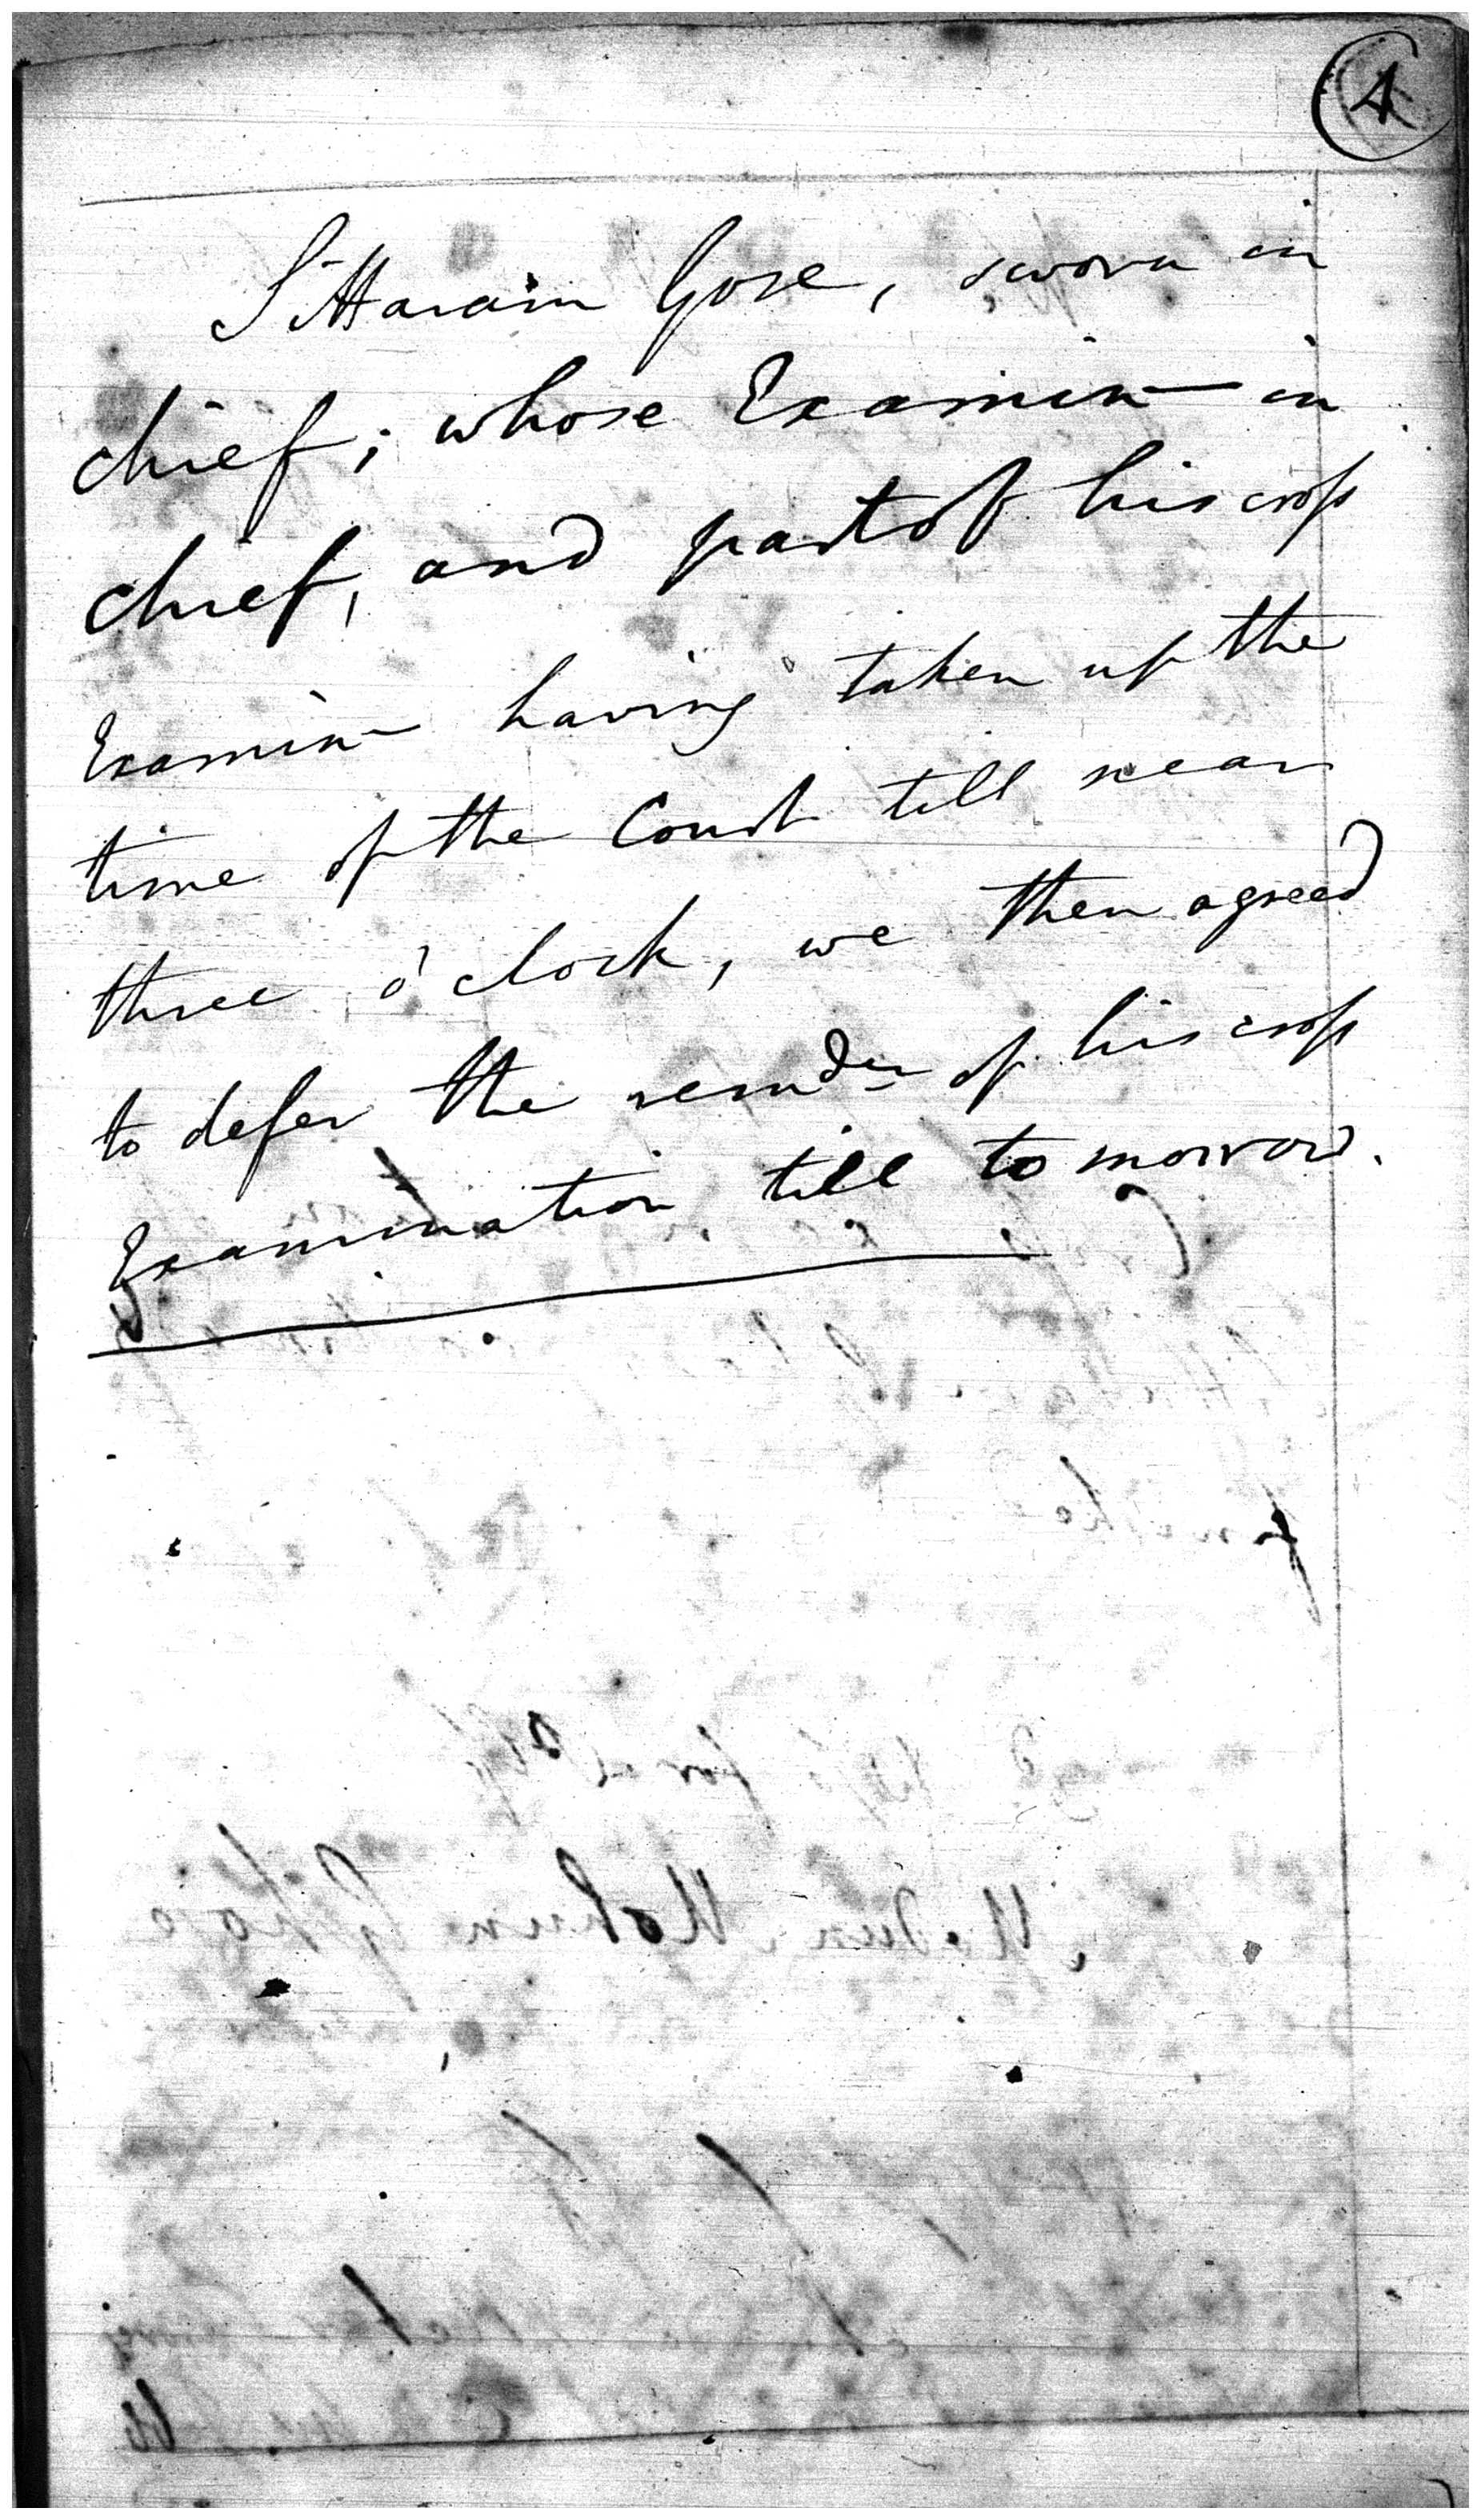 4
Sittaram Gose, sworn in
chief; whose Examin in
chief, and part of his cross
Examin having taken up the
time of the Court till near
three o'clock, we then agreed
to defer the remdr of his cross
Examination till to morrow.